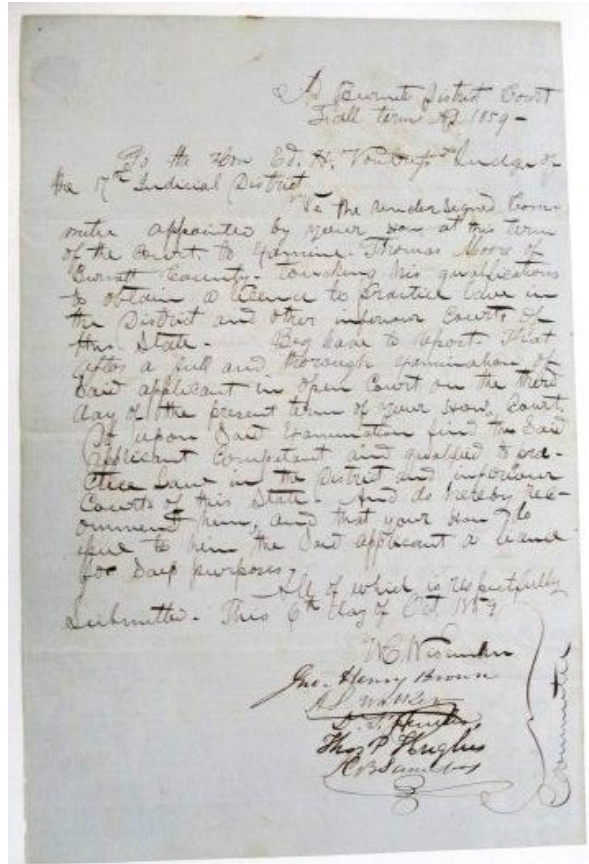 Burnett District Court
Fall term AD 1859 -
To the Hon Ed. H. Judge of
the 17th Judicial District
We the undersigned Com-
mittee appointed by your Hon at this term
of the Court, to Examine Thomas Moore of
Burnett County - touching his qualifications
to obtain a licence to practice Law in
the District and other inferiour Courts of
this State - Beg leave to report. That
after a full and thorough examination of
Said applicant in open Court on the third
day of the present term of your Hon. Court.
upon Said Examination find the Said
applicant Competent and qualified to pra-
ctice Law in the District and inferiour
Courts of this State - And do hereby rec-
ommend him, and that your Hon
issue to him the Said applicant a
for Said purposes -
All of which is respectfully
Submitted - This 6th day of Oct 1859
W.C.
Jno. Henry Brown
A.S. Walker
Thos P Hughes
Committee